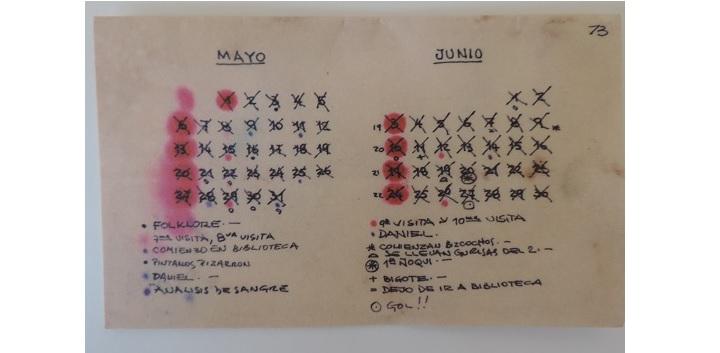 73
MAYO
1 2 3 4 5
6 7 8 9 10 11 12
13 14 15 16 17 18 19
20 21 22 23 24 25 26
27 28 29 30 31
• FOLKLORE. —
7ma VISITA, 8va VISITA
• COMIENZO EN BIBLIOTECA
• PINTAMOS PIZARRON
• DANIEL. —
• ANALISIS DE SANGRE
JUNIO
1 2
19 3 4 5 6 7 8 9 *
20 10 11 12 13 14 15 16
21 17 18 19 20 21 22 23
22 24 25 26 27 28 29 30
• 9ª VISITA Y 10ma VISITA
• DANIEL.
* COMIENZAN BIZCOCHOS. —
SE LLEVAN DEL 2. —
1ª ÑOQUI. —
+ BIGOTE. —
= DEJO DE IR A BIBLIOTECA
GOL!!